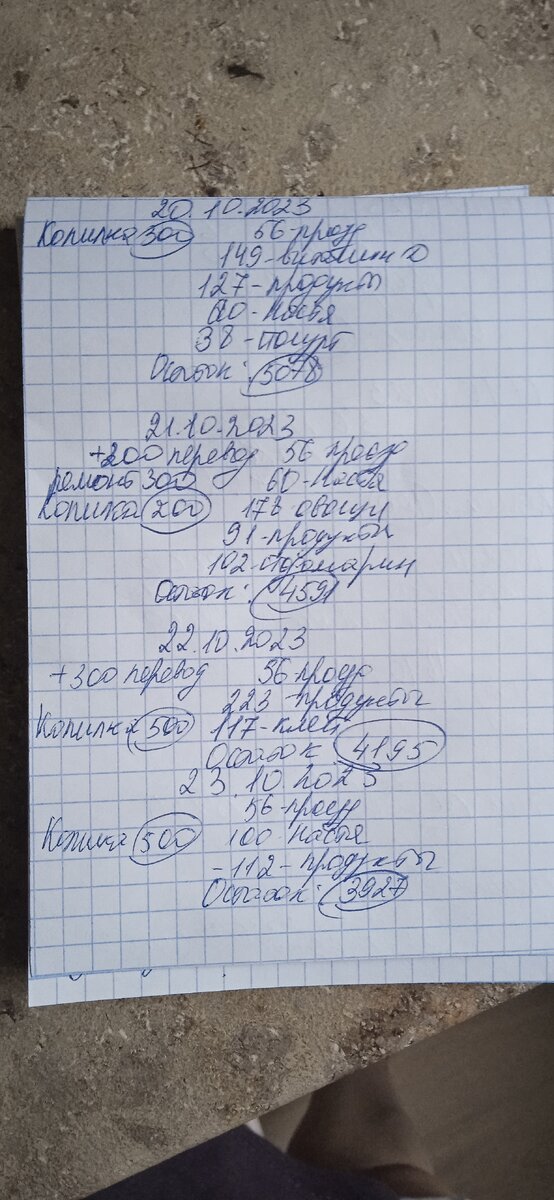 20.10.2023
Копилка 300 56-проезд
149-витамин Д
127-продукты
60-Настя
38-йогурт
Остаток: 5078
21.10.2023
+200 перевод 56 проезд
ремонт 300 60-Настя
Копилка 200 178 овощи
91-продукты
102-
Остаток: 4591
22.10.2023
+300 перевод 56 проезд
223-продукты
Копилка 500 117-клей
Остаток 4195
23.10.2023
56-проезд
Копилка 500 100 Настя
-112-продукты
Остаток: 3927